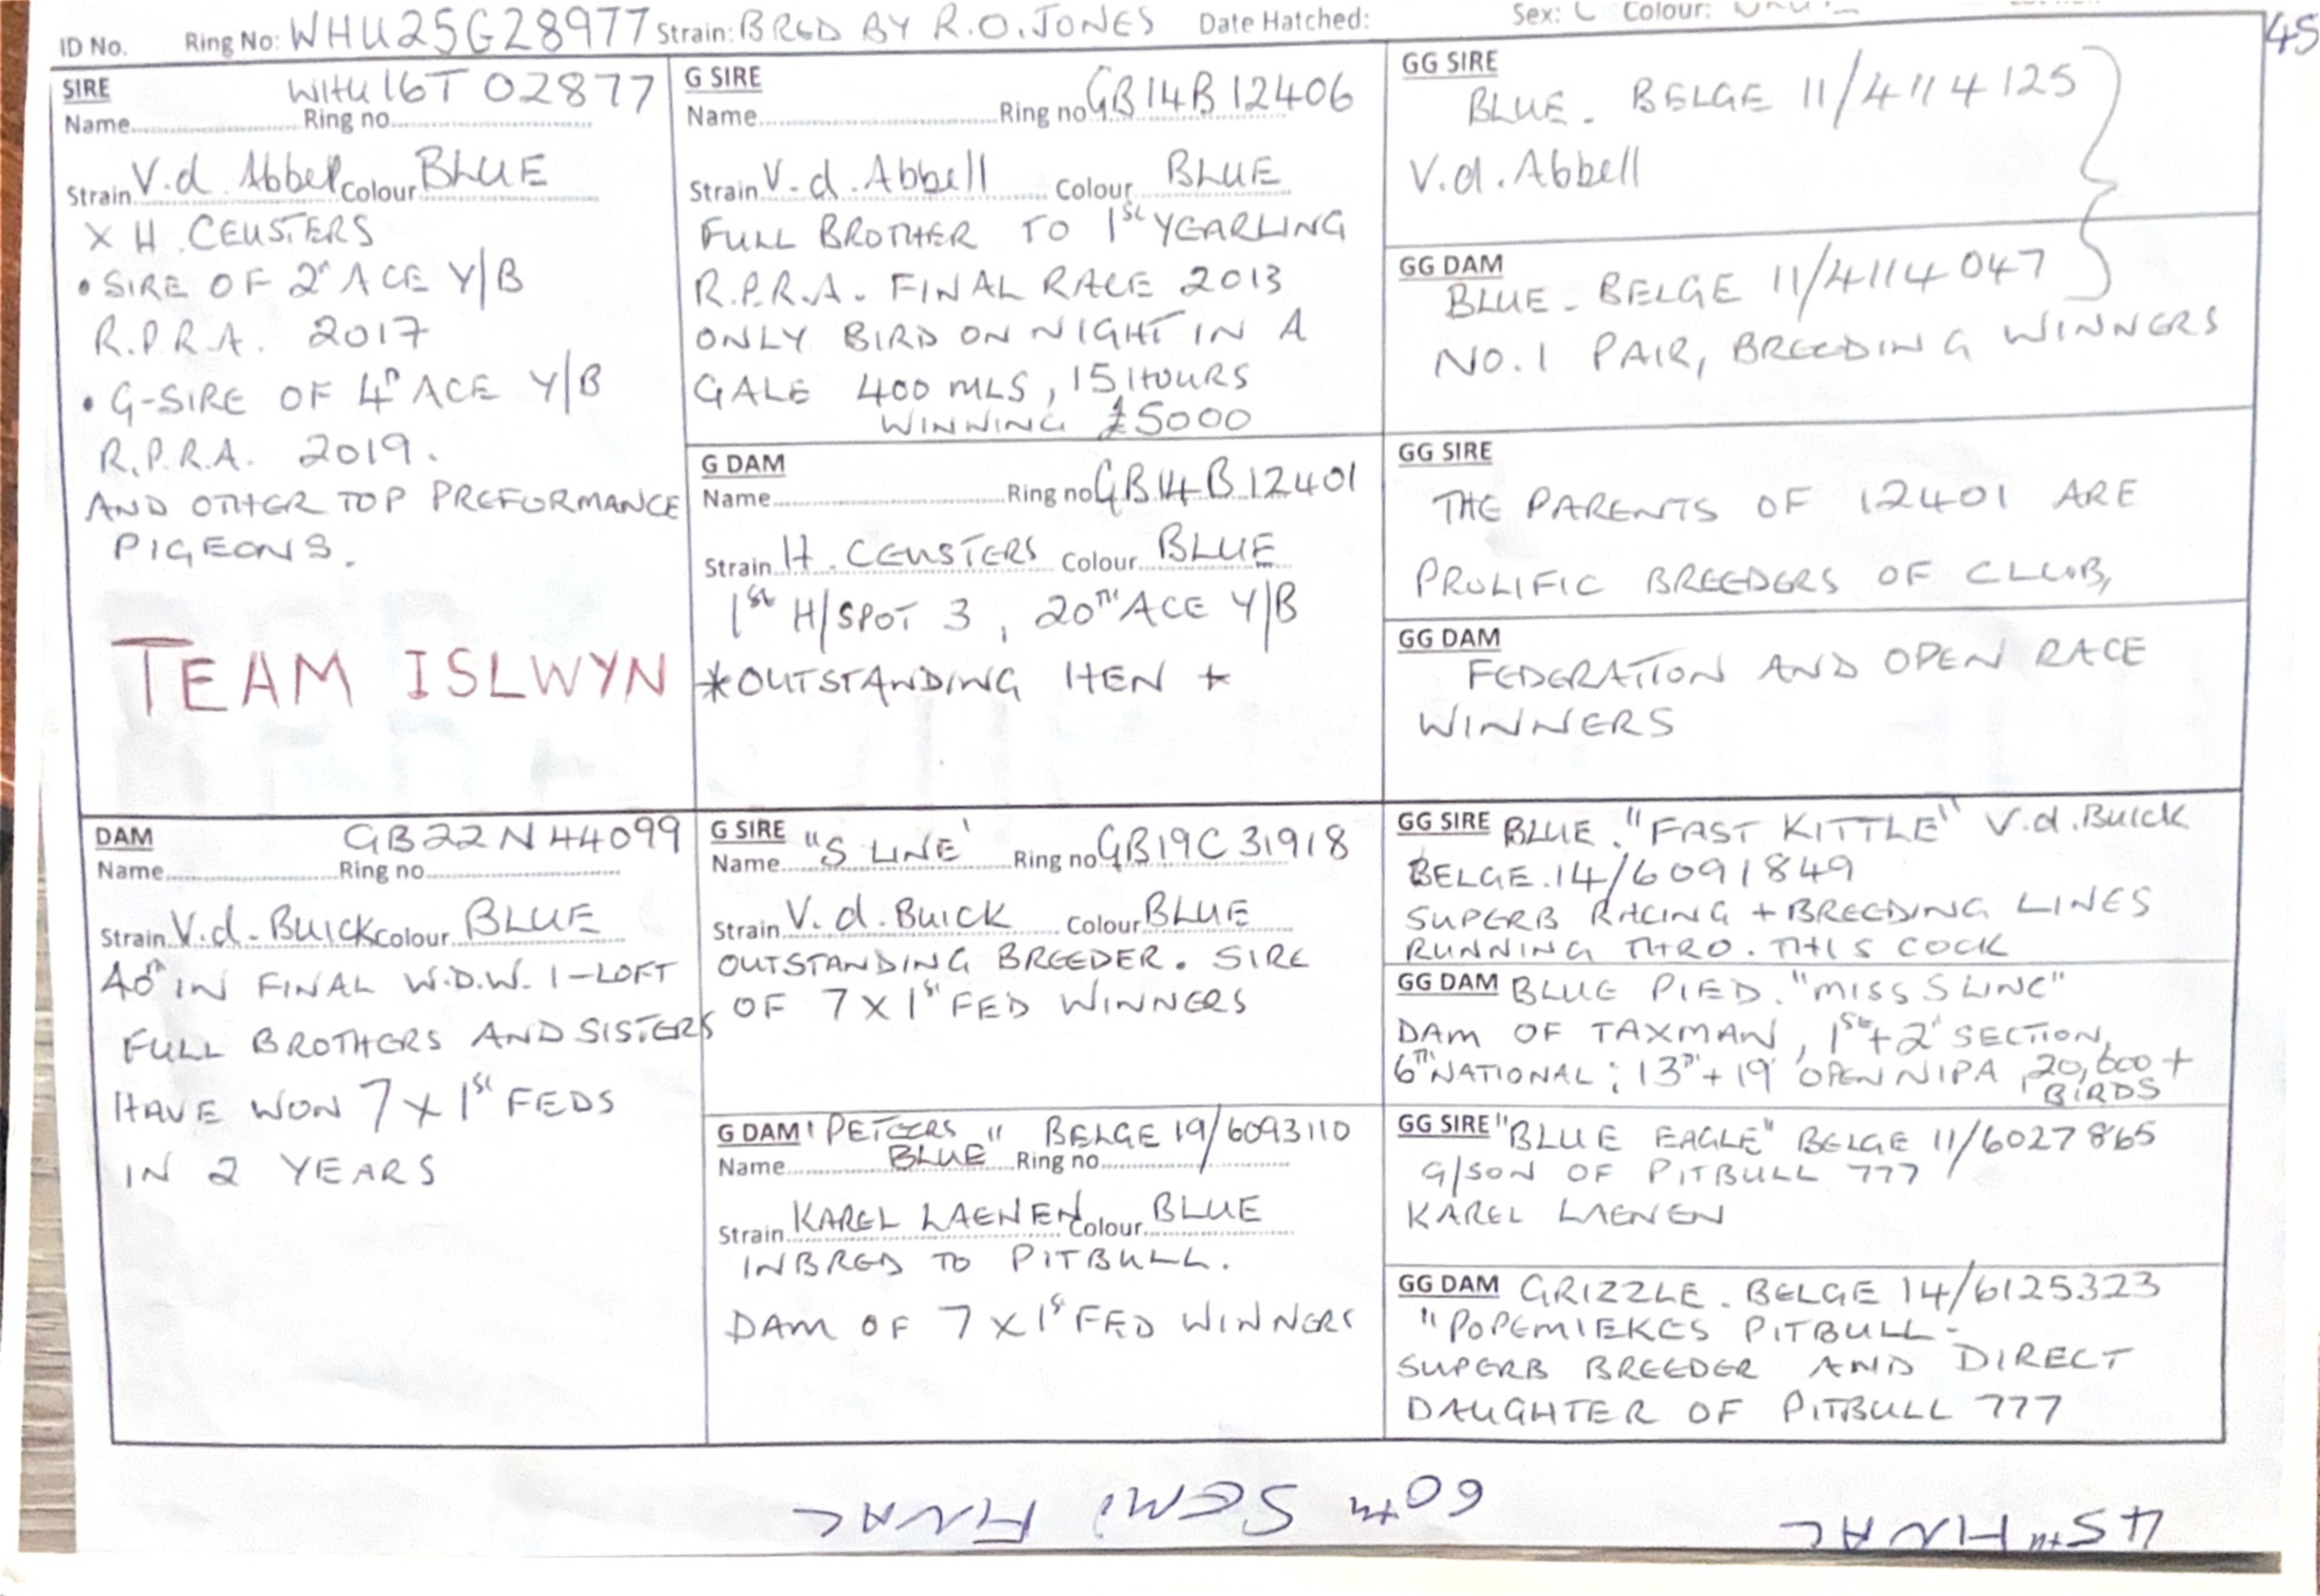 ID No. Ring No: WHU25G28977 Strain: BRED BY R.O. JONES Date Hatched: Sex: C Colour:
45
SIRE WHU16T 02877
Name Ring no
Strain V.d. Abbel Colour BLUE
X H. CEUSTERS
• SIRE OF 2ⁿ ACE Y/B
R.P.R.A. 2017
• G-SIRE OF 4ᵗʰ ACE Y/B
R.P.R.A. 2019.
AND OTHER TOP PREFORMANCE
PIGEONS.
TEAM ISLWYN
G SIRE
Name Ring no GB14B12406
Strain V.d. Abbell Colour BLUE
FULL BROTHER TO 1ˢᵗ YEARLING
R.P.R.A. FINAL RACE 2013
ONLY BIRD ON NIGHT IN A
GALE 400 MLS, 15 HOURS
WINNING £5000
G DAM
Name Ring no GB14B12401
Strain H. CEUSTERS Colour BLUE
1ˢᵗ H/SPOT 3, 20ᵀᴴ ACE Y/B
*OUTSTANDING HEN *
GG SIRE
BLUE. BELGE 11/4114125
V.d. Abbell
GG DAM
BLUE - BELGE 11/4114047
NO.1 PAIR, BREEDING WINNERS
GG SIRE
THE PARENTS OF 12401 ARE
PROLIFIC BREEDERS OF CLUB,
GG DAM
FEDERATION AND OPEN RACE
WINNERS
DAM GB22N44099
Name Ring no
Strain V.d. Buick Colour BLUE
40ᵗʰ IN FINAL W.D.W. 1-LOFT
FULL BROTHERS AND SISTERS
HAVE WON 7 X 1ˢᵗ FEDS
IN 2 YEARS
G SIRE "S LINE'
Name Ring no GB19C31918
Strain V.d. Buick Colour BLUE
OUTSTANDING BREEDER. SIRE
OF 7 X 1ˢᵗ FED WINNERS
G DAM ' PETERS " BELGE 19/6093110
Name BLUE Ring no
Strain KAREL LAENEN Colour BLUE
INBRED TO PITBULL.
DAM OF 7 X 1ˢᵗ FED WINNERS
GG SIRE BLUE. "FAST KITTLE" V.d. Buick
BELGE.14/6091849
SUPERB RACING + BREEDING LINES
RUNNING THRO. THIS COCK
GG DAM BLUE PIED. "MISS S LINE"
DAM OF TAXMAN, 1ˢᵗ + 2ⁿᵈ SECTION,
6ᵀᴴ NATIONAL; 13ᵀᴴ + 19 OPEN NIPA, 20,600 +
BIRDS
GG SIRE "BLUE EAGLE" BELGE 11/6027865
G/SON OF PITBULL 777
KAREL LAENEN
GG DAM GRIZZLE. BELGE 14/6125323
"POPEMIEKES PITBULL -
SUPERB BREEDER AND DIRECT
DAUGHTER OF PITBULL 777
60ᵀᴴ SEMI FINAL
45ᵀᴴ FINAL